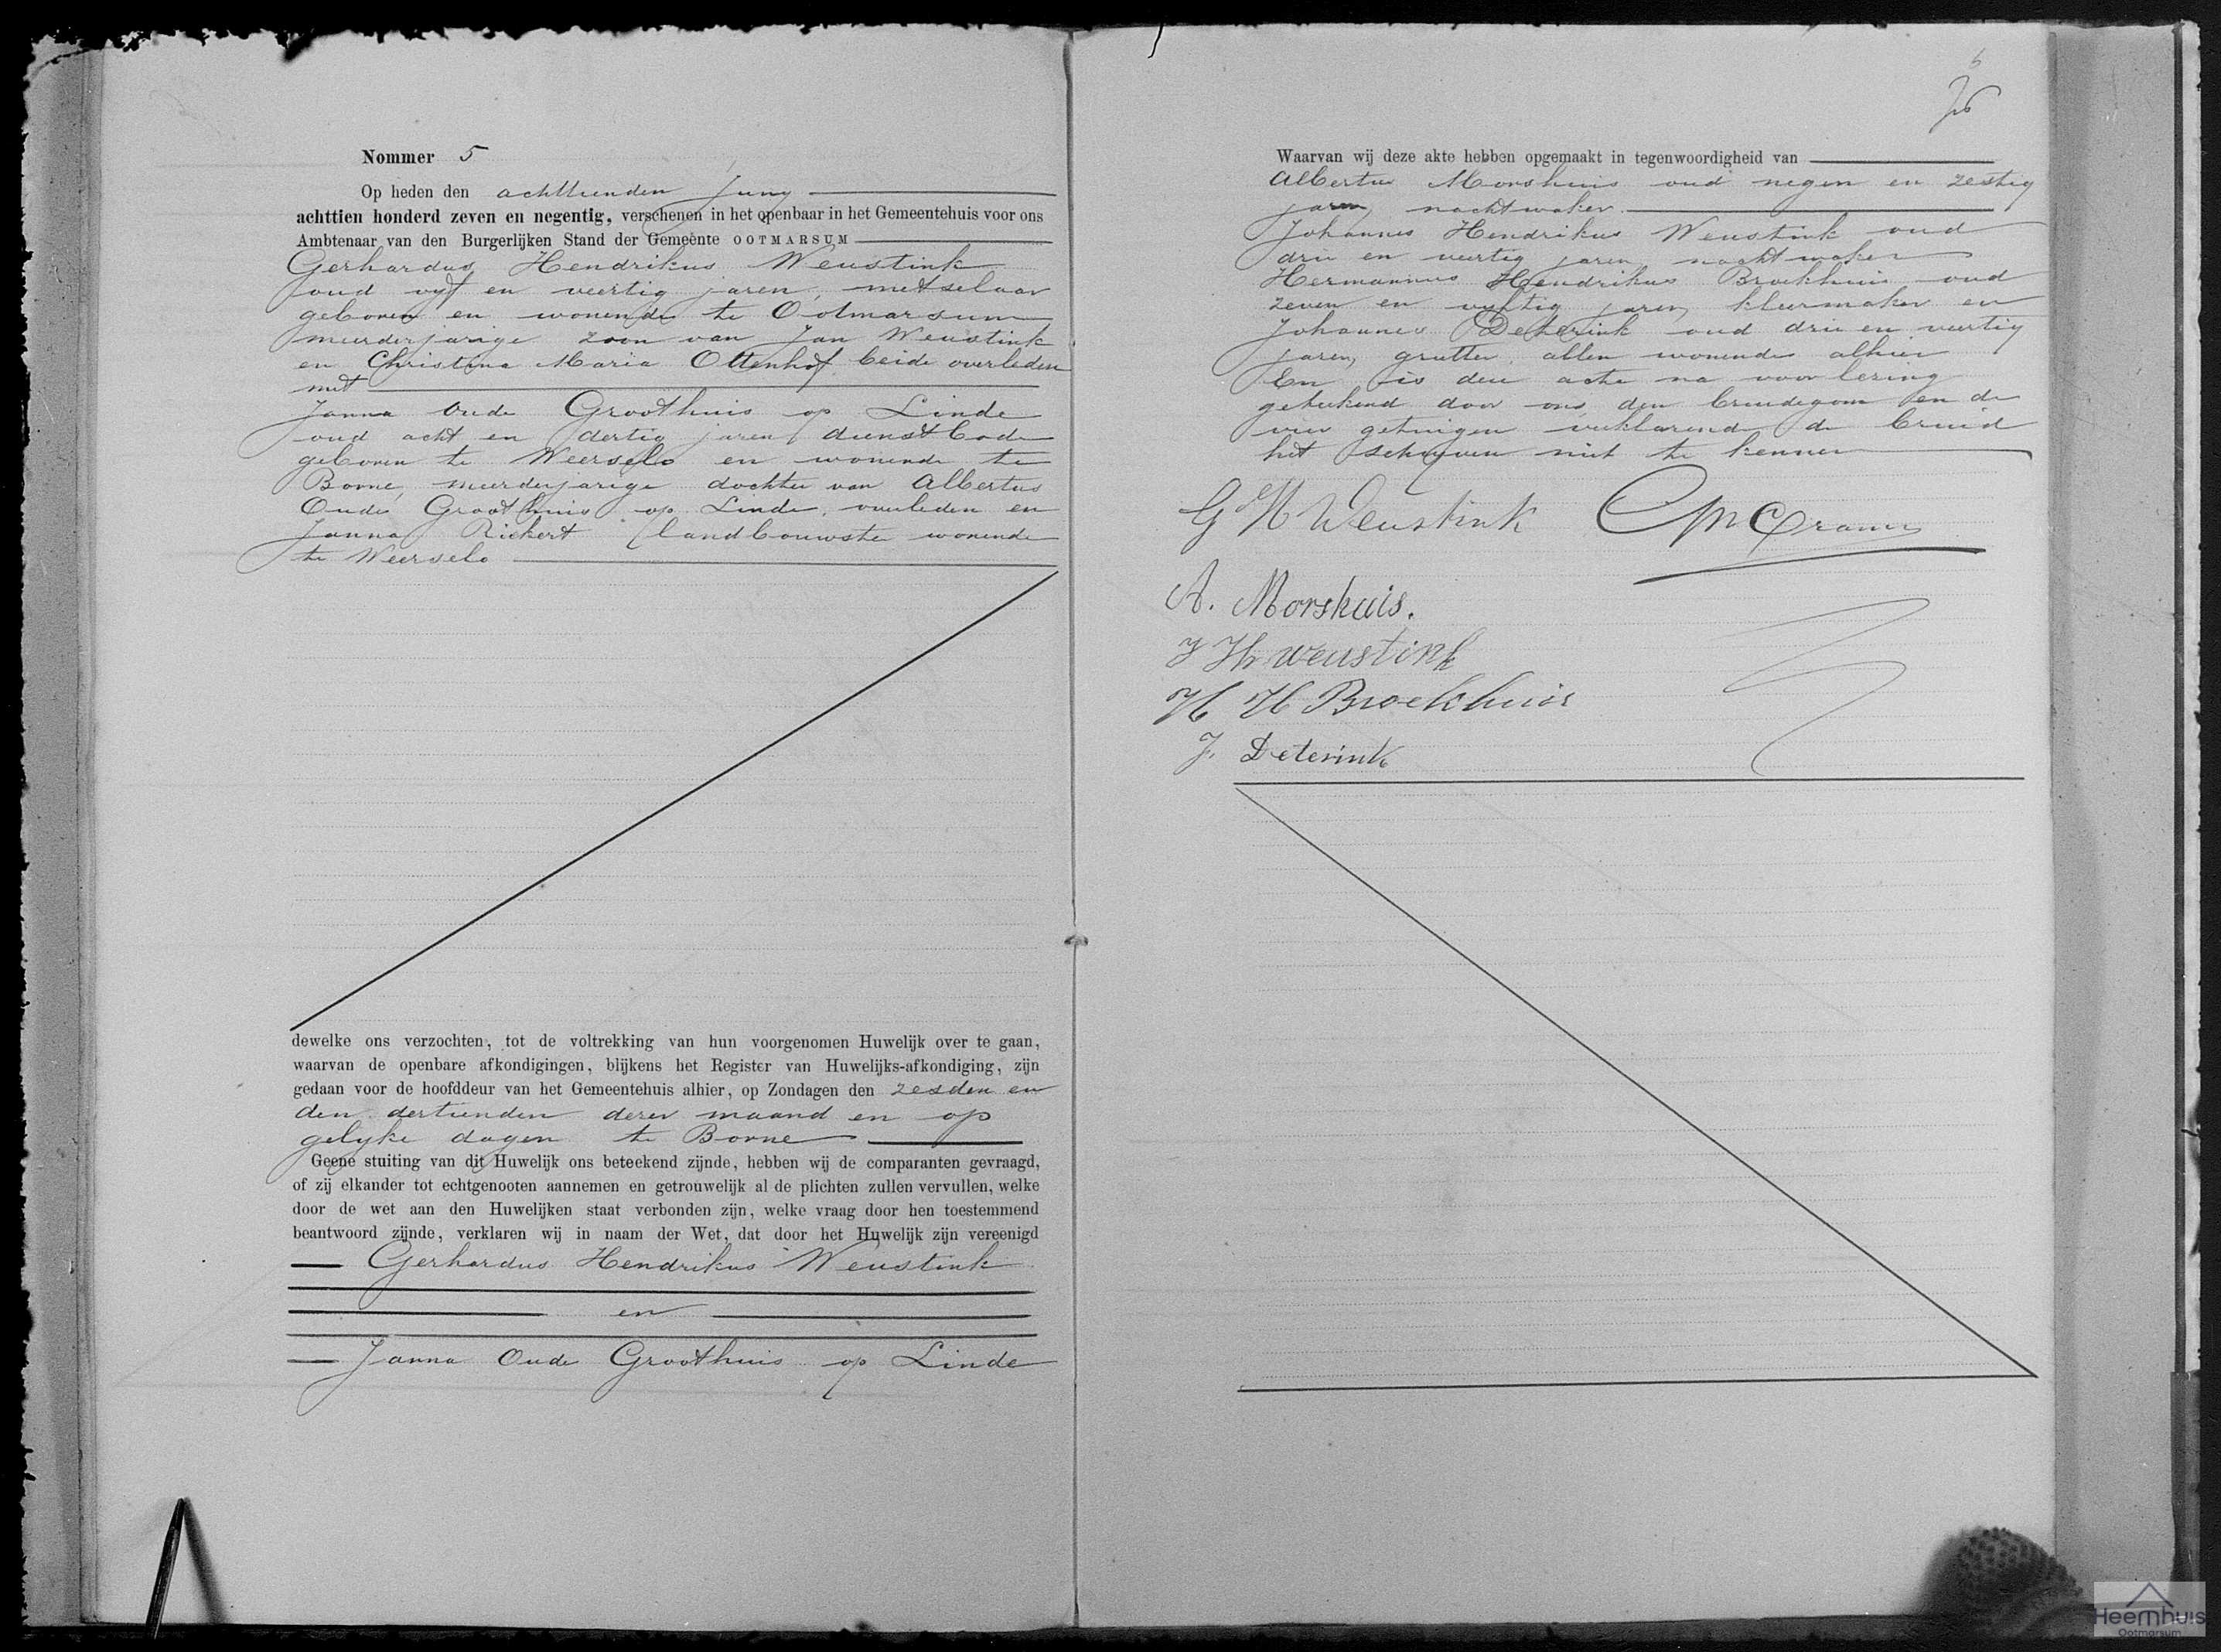 Nommer 5
Op heden den achttienden Juny
achttien honderd zeven en negentig, verschenen in het openbaar in het Gemeentehuis voor ons
Ambtenaar van den Burgerlijken Stand der Gemeente OOTMARSUM
Gerhardus Hendrikus Weustink
oud vyf en veertig jaren, metselaar
geboren en wonende te Ootmarsum
meerderjarige zoon van Jan Weustink
en Christina Maria Ottenhof beide overleden
met
Janna Oude Groothuis op Linde
oud acht en dertig jaren dienstbode
geboren te Weerselo en wonende te
Borne, meerderjarige dochter van Albertus
Oude Groothuis op Linde, overleden en
Janna Riekert landbouwster wonende
te Weerselo
dewelke ons verzochten, tot de voltrekking van hun voorgenomen Huwelijk over te gaan,
waarvan de openbare afkondigingen, blijkens het Register van Huwelijks-afkondiging, zijn
gedaan voor de hoofddeur van het Gemeentehuis alhier, op Zondagen den zesden en
den dertienden dezer maand en op
gelyke dagen te Borne
Geene stuiting van dit Huwelijk ons beteekend zijnde, hebben wij de comparanten gevraagd,
of zij elkander tot echtgenooten aannemen en getrouwelijk al de plichten zullen vervullen, welke
door de wet aan den Huwelijken staat verbonden zijn, welke vraag door hen toestemmend
beantwoord zijnde, verklaren wij in naam der Wet, dat door het Huwelijk zijn vereenigd
Gerhardus Hendrikus Weustink
en
Janna Oude Groothuis op Linde
6
Waarvan wij deze akte hebben opgemaakt in tegenwoordigheid van
Albertus Morshuis oud negen en zestig
jaren, nachtwaker
Johannes Hendrikus Weustink oud
drie en veertig jaren nachtwaker
Hermannus Hendrikus Broekhuis oud
zeven en vyftig jaren, kleermaker en
Johannes Deterink oud drie en veertig
jaren, grutter, allen wonende alhier
En is deze acte na voorlezing
geteekend door ons, den bruidegom en de
vier getuigen verklarende de bruid
het schryven niet te kennen
G H Weustink
Cramer
A. Morshuis.
J H weustink
H H Broekhuis
J. Deterink
Heemhuis
Ootmarsum